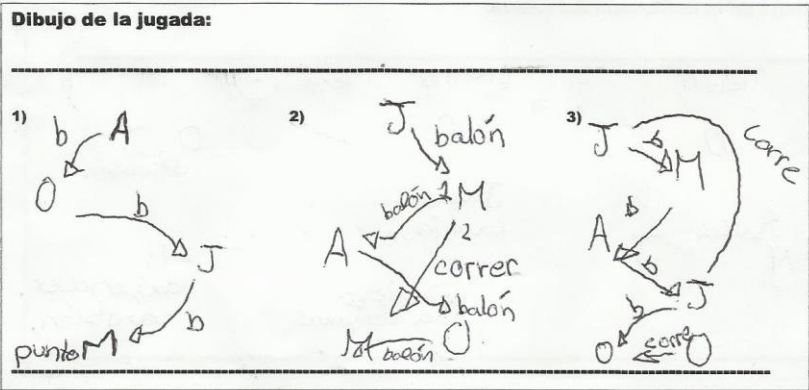 Dibujo de la jugada:
1)
b A
O
b
J
b
punto M
2)
J balón
balón 1 M
A 2
correr
balón
M balón O
3)
J b M
corre
b
A
b
J
b
O corre O